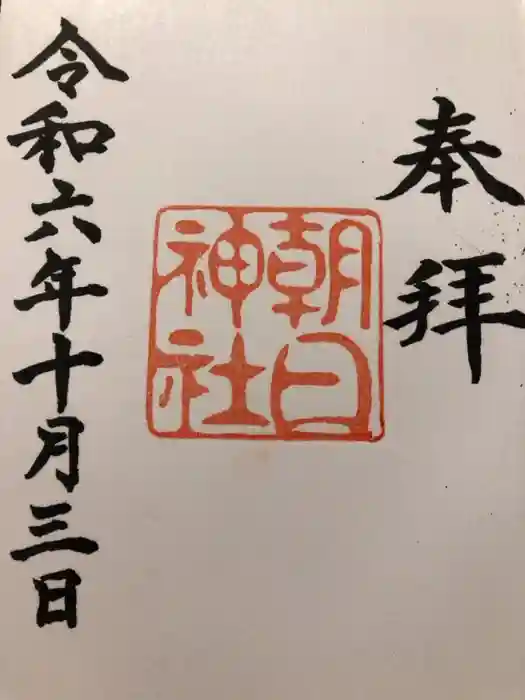 奉拝
朝日
神社
令和六年十月三日